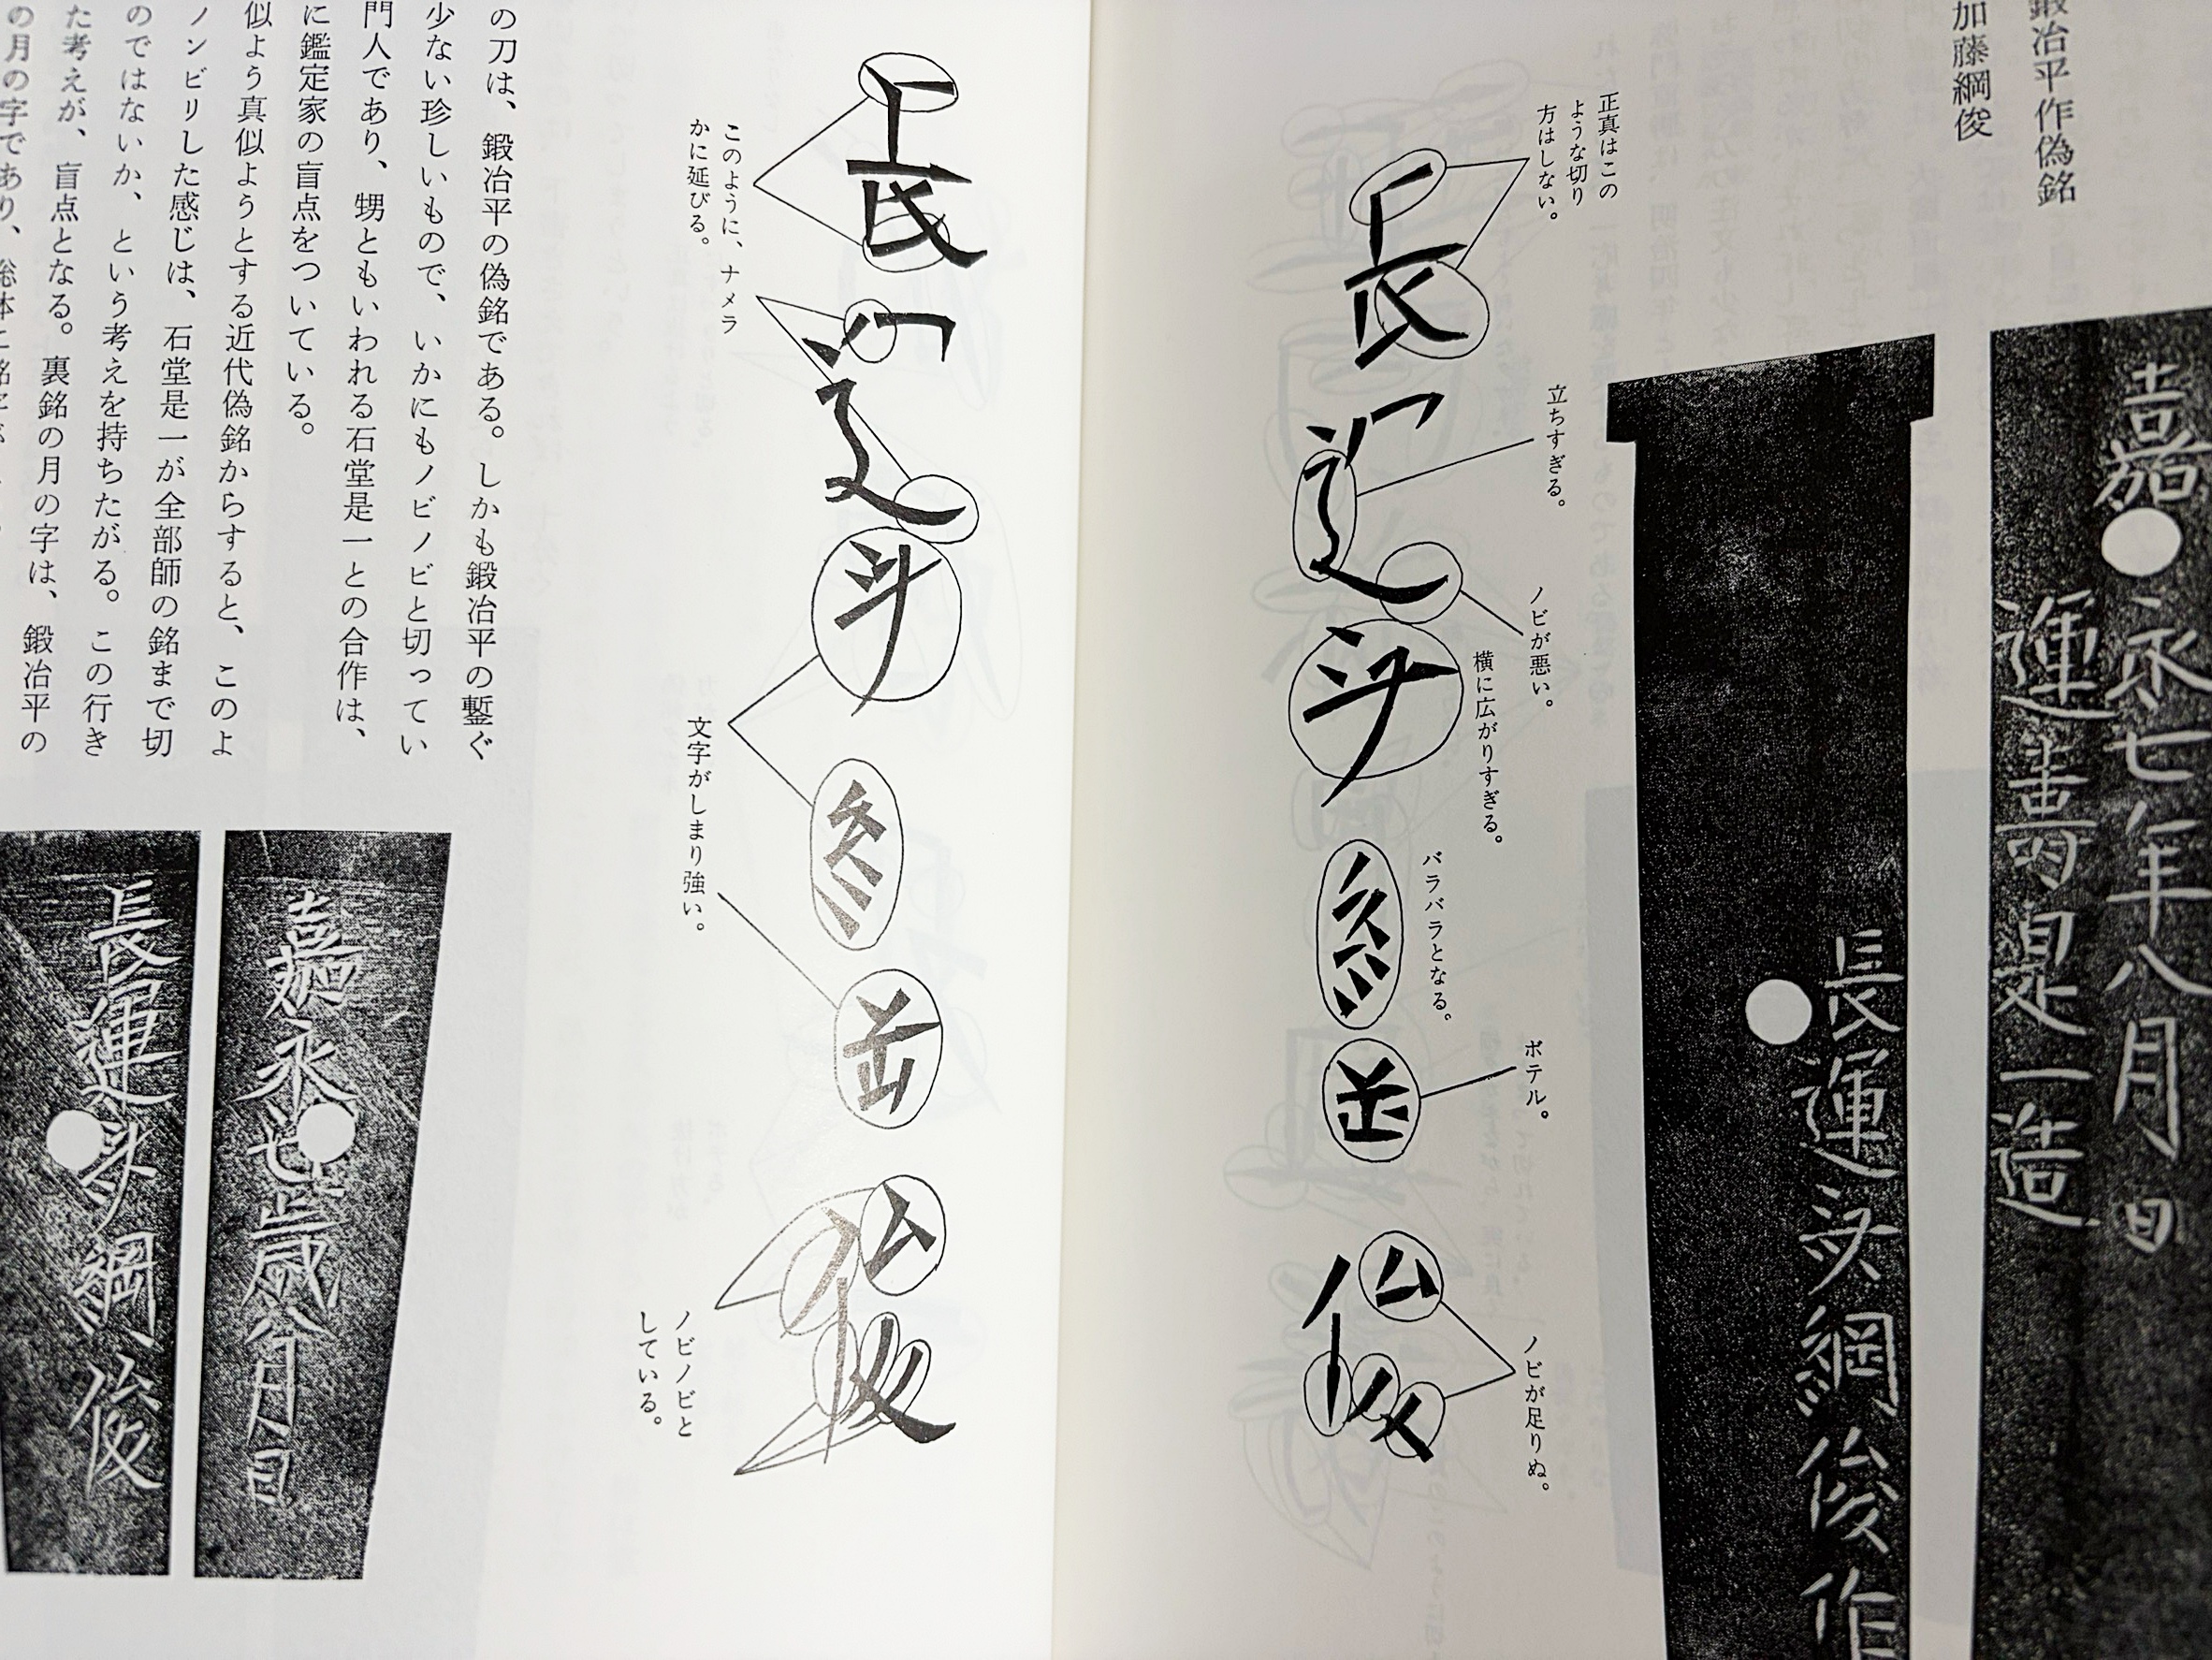 鍛冶平作偽銘
加藤綱俊
嘉
永七年八月日
運寿是一造
長運斎綱俊作
正真はこの
ような切り
方はしない。
立ちすぎる。
ノビが悪い。
横に広がりすぎる。
バラバラとなる。
ボテル。
ノビが足りぬ。
このように、ナメラ
かに延びる。
文字がしまり強い。
ノビノビと
している。
の刀は、鍛冶平の偽銘である。しかも鍛冶平の鏨ぐ
少ない珍しいもので、いかにもノビノビと切ってい
門人であり、甥ともいわれる石堂是一との合作は、
に鑑定家の盲点をついている。
似よう真似ようとする近代偽銘からすると、このよ
ノンビリした感じは、石堂是一が全部師の銘まで切
のではないか、という考えを持ちたがる。この行き
た考えが、盲点となる。裏銘の月の字は、鍛冶平の
の月の字であり、
嘉永七歳
月日
長運斎綱俊